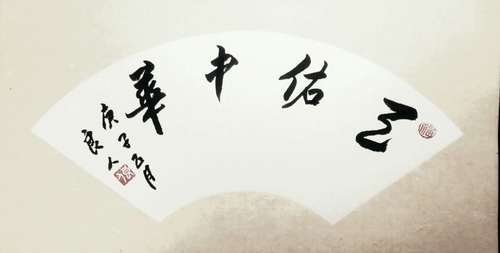 天佑中華
庚子五月
良人